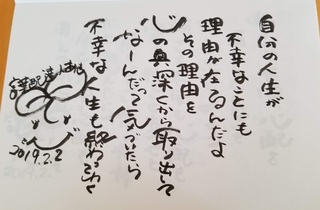 自分の人生が
不幸なことにも
理由が在るんだよ
その理由を
心の奥深くから取り出して
なーんだって気づいたら
不幸な人生も終わるわく
2019.2.2